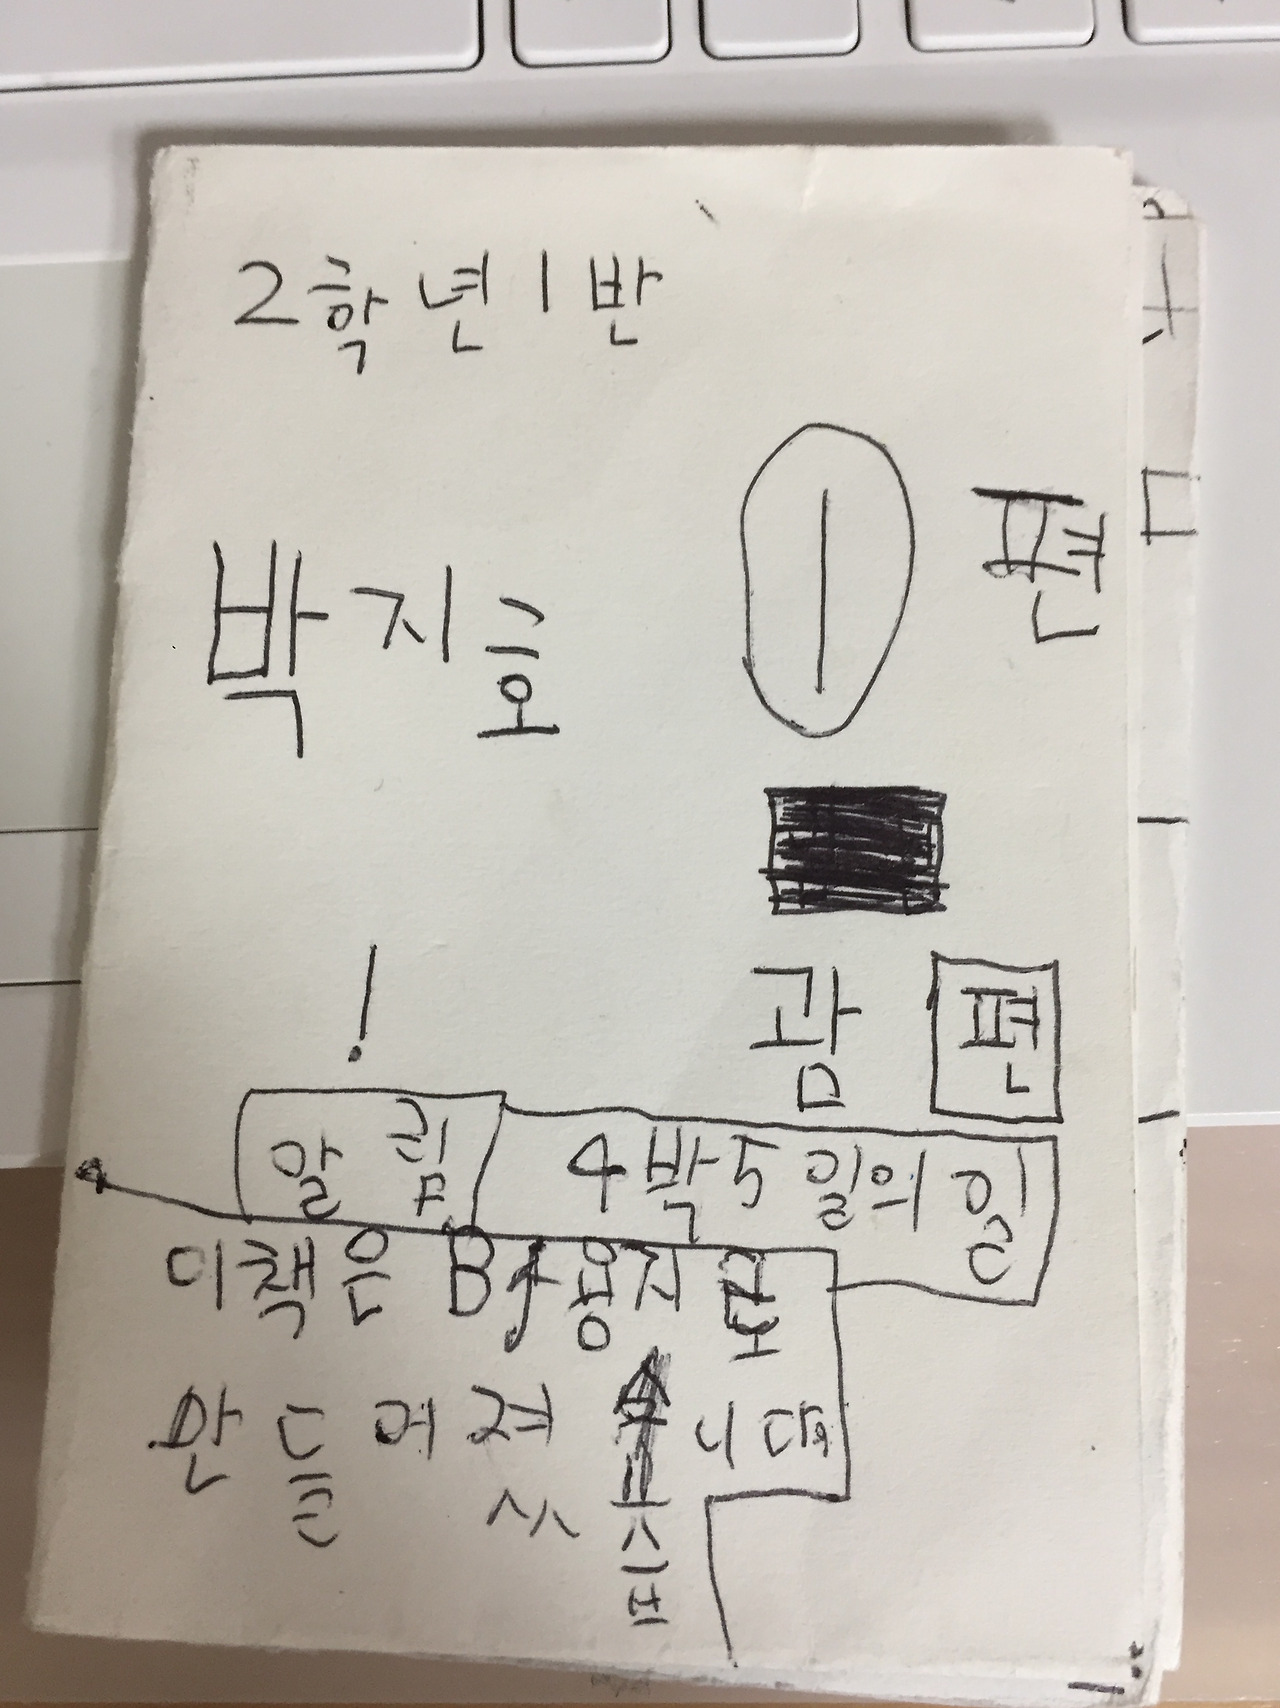 2학년 1반
1 편
박지호
괌 편
!
알림 4박 5일의 일
이 책은 B4용지로
만들어졌습니다